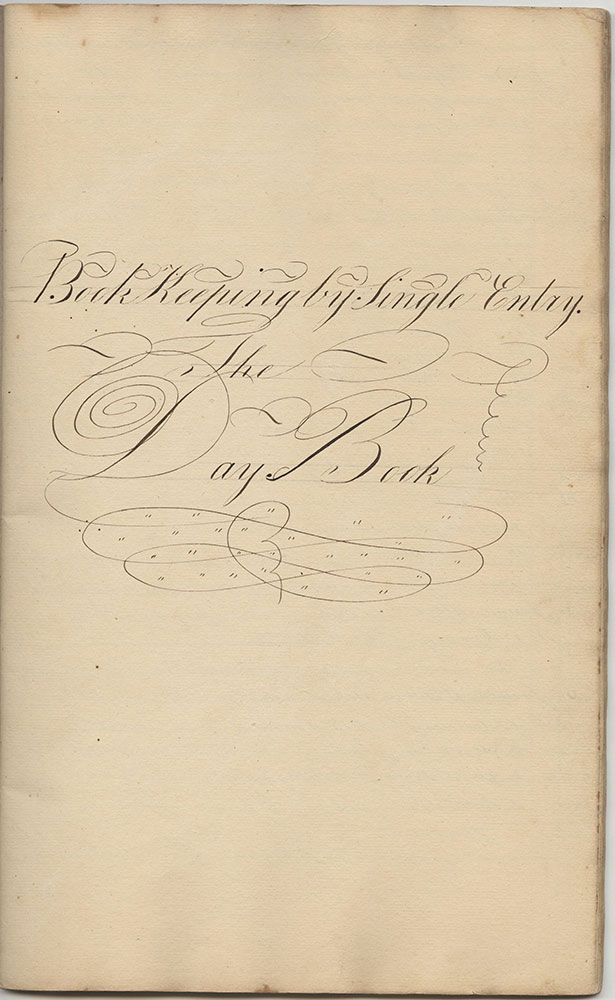 Book Keeping by Single Entry.
The
Day Book